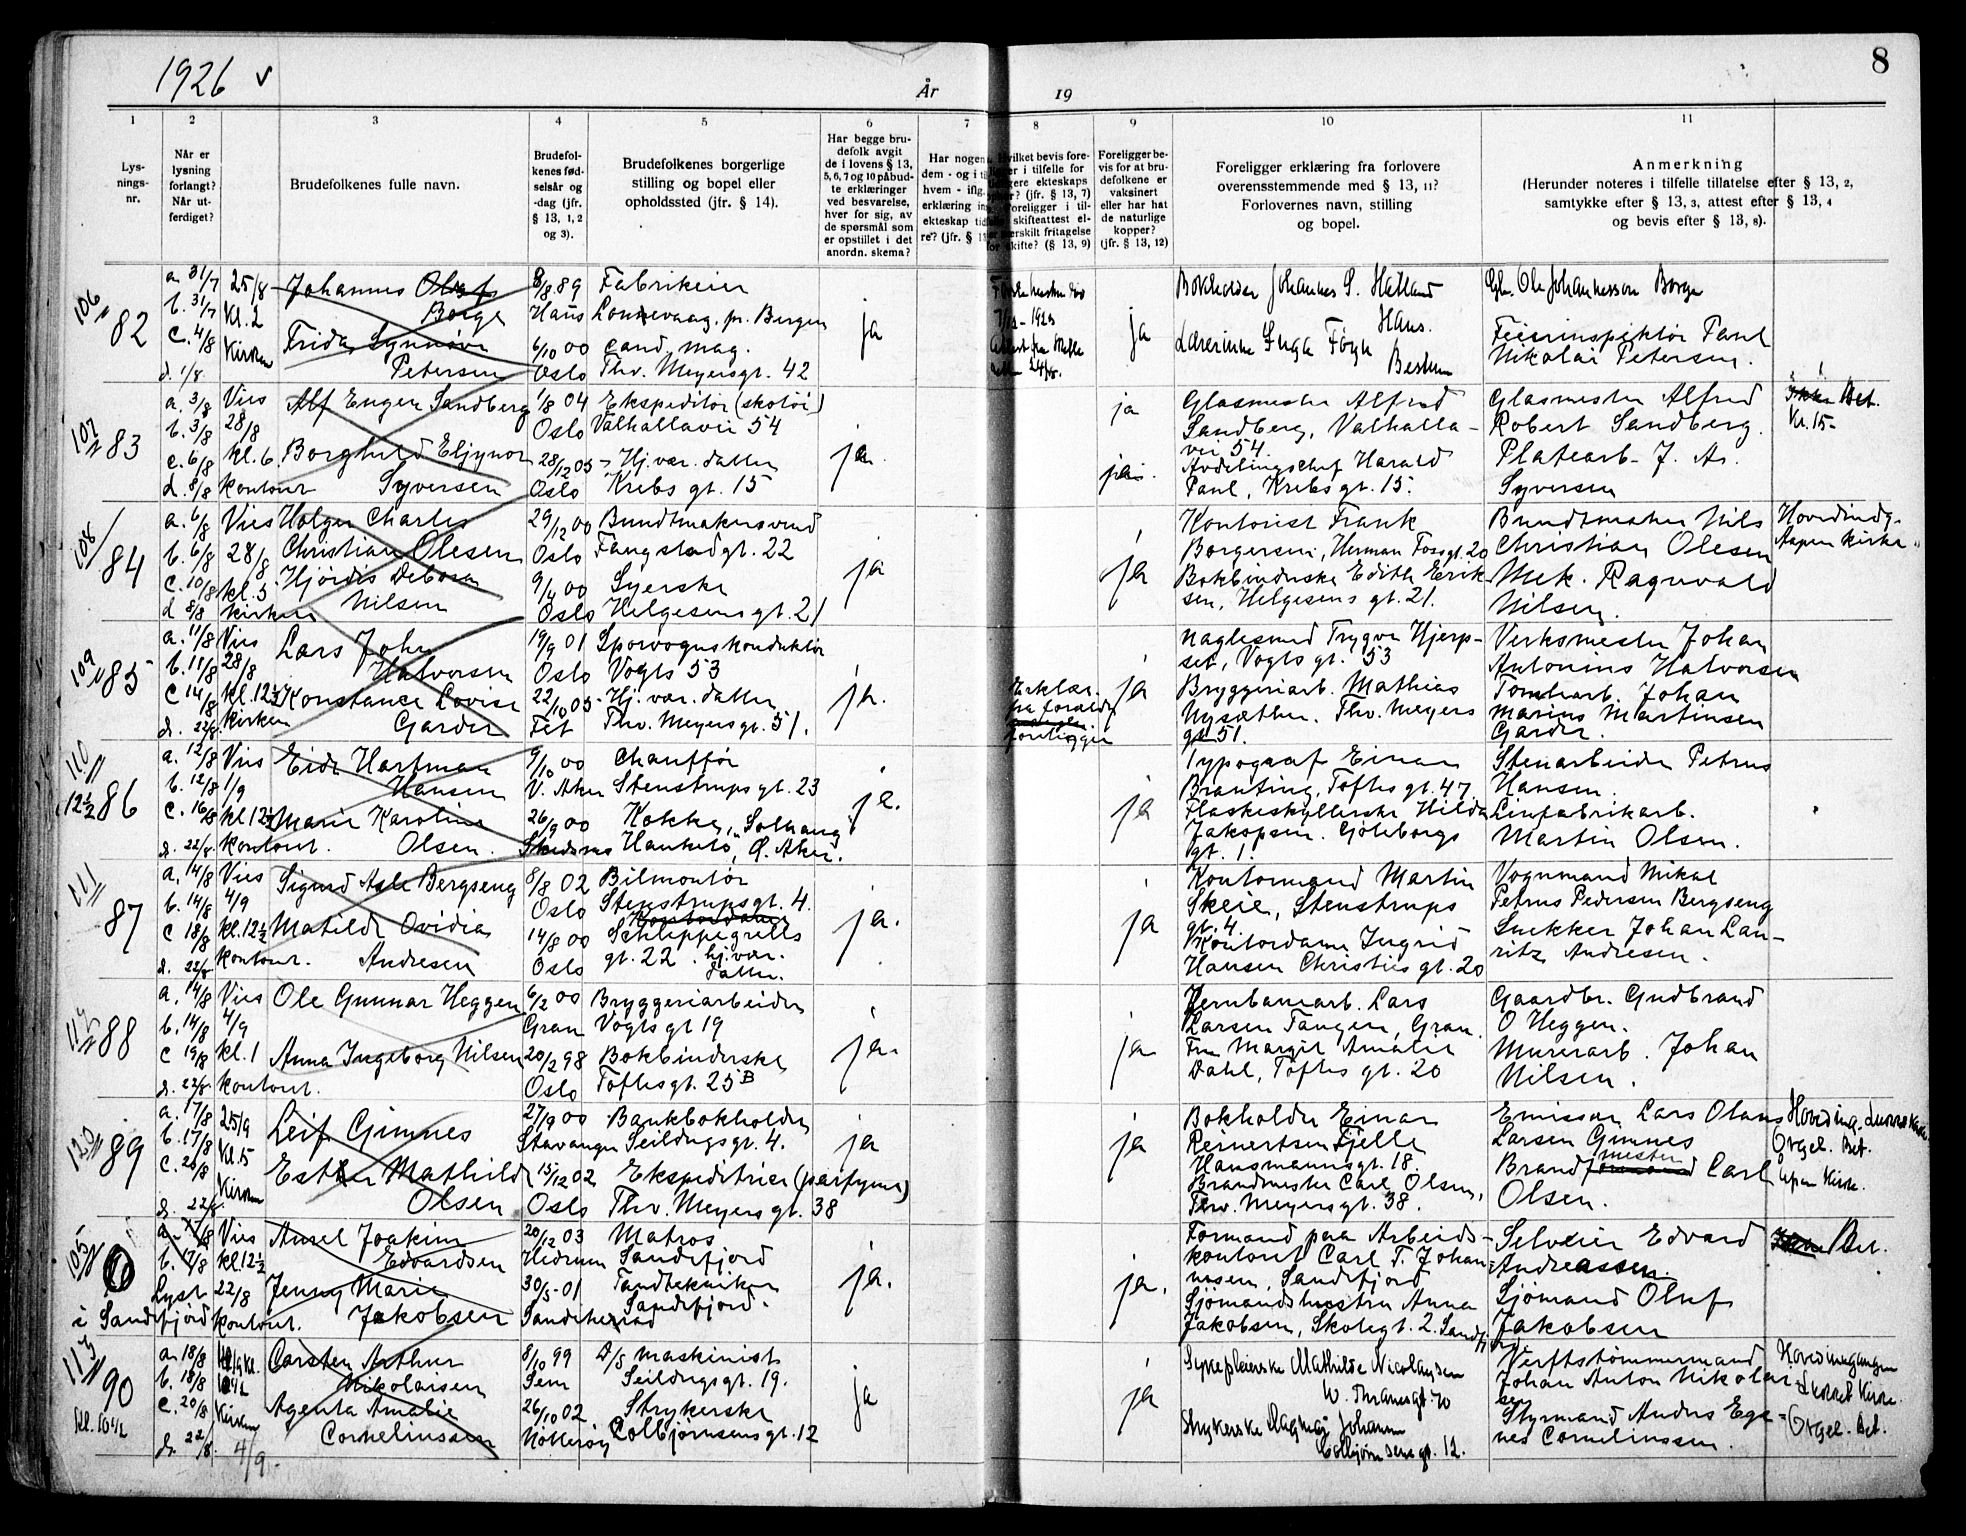 1926 ✓
År
19
8
1
2
3
4
5
6
7
8
9
10
11
Lys-
nings-
nr.
Når er
lysning
forlangt?
Når ut-
ferdiget?
Brudefolkenes fulle navn.
Brudefol-
kenes fød-
selsår og
-dag (jfr.
§ 13, 1, 2
og 3).
Brudefolkenes borgerlige
stilling og bopel eller
opholdssted (jfr. § 14).
Har begge bru-
defolk avgit
de i lovens § 13,
5, 6, 7 og 10 påbud-
te erklæringer
ved besvarelse,
hver for sig, av
de spørsmål som
er opstillet i det
anordn. skema?
Har nogen
dem - og i
hvem - iflg.
erklæring
ekteskap
re? (jfr. §
Hvilket bevis fore-
i tilfelle for
ekteskaps
(jfr. § 13, 7)
foreligger i til-
skifteattest el-
særskilt fritagelse
for skifte? (§ 13, 9)
Foreligger be-
vis for at bru-
defolkene er
vaksinert
eller har hat
de naturlige
kopper?
(jfr. § 13, 12)
Foreligger erklæring fra forlovere
overensstemmende med § 13, 11?
Forlovernes navn, stilling
og bopel.
Anmerkning
(Herunder noteres i tilfelle tillatelse efter § 13, 2,
samtykke efter § 13, 3, attest efter § 13, 4
og bevis efter § 13, 8).
106
82
a. 31/7
b. 31/7
c. 4/8
d. 1/8
25/8
Kl. 2
Kirken
Johannes Olaf
Borge
Frida Synnøve
Petersen
8/8 89
Haus
6/10 00
Oslo
Fabrikeier
Lonevaag, pr. Bergen
cand. mag.
Thv. Meyersgt. 42
ja
ja
Bokholder Johannes S. Hatland
Haus.
Lærerinne Inga Föyn
Bestum
Gbr. Ole Johannesson Borge
Feierinspektör Paul
Nikolai Petersen.
107
83
a. 3/8
b. 3/8
c. 6/8
d. 8/8
Vies
28/8
kl. 6
kontoret
Alf Enger Sandberg
Borghild Eljynor
Syversen
1/8 04
Oslo
28/12 05
Oslo
Ekspeditör (skotöi)
Valhallavei 54
Hj. vær. datter
Krebs gt. 15
ja
ja
ja
Glasmester Alfred
Sandberg, Valhalla-
vei 54.
Avdelingschef Harald
Paul, Krebsgt. 15.
Glasmester Alfred
Robert Sandberg.
Platearb. J. Ar.
Syversen
Ikke Bet.
Kr. 15-
108
84
a. 6/8
b. 6/8
c. 10/8
d 8/8
Vies
28/8
kl. 5
kirken
Holger Charles
Christian Olesen
Hjördis Debora
Nilsen
29/12 00
Oslo
9/4 00
Oslo
Bundtmakersvend
Fangstadgt. 22
Syerske
Helgesens gt. 21
ja
ja
Kontorist Frank
Borgersen, Herman Fossgt. 20
Bokbinderske Edith Erik-
sen, Helgesens gt. 21.
Bundtmaker Nils
Christian Olesen
Mek. Ragnvald
Nilsen.
Hovedindg.
Aapen kirke
109
85
a. 11/8
b. 11/8
c 14/8
d. 22/8
Vies
28/8
kl. 12½
kirken
Lars John
Halvorsen
Konstance Lovise
Garder
19/9 01
Oslo
22/10 05
Fet
Sporvognskonduktör
Vogts 53
Hj. vær. datter
Thv. Meyersgt. 51.
ja.
Erklær.
fra forældre
foreligger
ja
Naglesmed Trygve Hjerp-
set, Vogts gt. 53
Bryggeriarb. Mathias
Nysæther. Thv. Meyers
gt 51.
Verksmester Johan
Antonius Halvorsen
Tomtearb. Johan
Marius Martinsen
Garder.
110
12½ 86
a. 12/8
b. 12/8
c. 16/8
d. 22/8
Vies
1/9
kl. 12½
kontoret.
Eide Hartman
Hansen
Marie Karoline
Olsen.
9/10 00
V. Aker
26/9 00
Skedsmo
Chaufför
Stenstrupsgt. 23
Kokke, "Solhaug"
Hauketo, Ö. Aker.
ja.
ja
Typograf Einar
Branting, Toftesgt. 47
Flaskeskyllerske Hilda
Jakopsen. Göteborgs
gt. 1.
Stenarbeider Petrus
Hansen.
Limfabrikarb.
Martin Olsen.
111
87
a. 14/8
b. 14/8
c 18/8
d. 22/8
Vies
4/9
kl. 12½
kontoret.
Sigurd Asle Bergseng
Matilde Ovidia
Andresen
8/8 02
Oslo
14/8 00
Oslo
Bilmontör
Stenstrupsgt. 4.
Kontordame
Schleppegrells
gt. 22. hj. vær.
datter.
ja.
ja
Kontormand Martin
Skeie, Stenstrups
gt. 4.
Kontordame Ingrid
Hansen Christies gt. 20
Vognmand Mikal
Petrus Pedersen Bergseng
Snekker Johan Lau-
ritz Andresen.
88
a. 14/8
b. 14/8
c 19/8
d. 22/8
Vies
4/9
kl. 1
kontoret.
Ole Gunnar Heggen
Anna Ingeborg Nilsen
6/2 00
Gran
20/2 98
Oslo
Bryggeriarbeider
Vogts gt 19
Bokbinderske
Toftesgt. 25 B
ja.
ja
Jernbanearb. Lars
Larsen Tangen, Gran.
Fru Margit Amalie
Dahl, Toftes gt. 20
Gaardbr. Gudbrand
O Heggen.
Murerarb. Johan
Nilsen.
120
89
a. 17/8
b. 17/8
c. 20/8
d. 22/8
25/9
Kl. 5
Kirken
Leif Gimnes
Esther Mathilde
Olsen
27/9 00
Stavanger
15/12 02
Oslo
Bankbokholder
Seildugsgt. 4.
Ekspeditrice (parfyme)
Thv. Meyers gt. 38
ja
ja
Bokholder Einar
Reinertsen Fjelle
Hausmannsgt. 18.
Brandmester Carl Olsen,
Thv. Meyersgt. 38.
Emissær Lars Olaus
Larsen Gimnes
mester
Brandformand Carl
Olsen.
Orgel. Bet.
Aapen Kirke.
105
0
a. 17/8
b. 17/8
Lyst
i Sandefjord
Vies
kl. 12½
22/8
kontoret.
Aksel Joakim
Edvardsen
Jenny Marie
Jakobsen
20/12 03
Hedrum
30/5-01
Sandeherad
Matros
Sandefjord
Tandtekniker
Sandefjord.
ja.
ja.
Formand paa Arbeids-
kontoret Carl T. Johan-
nesen, Sandefjord
Sjömandshustru Anna
Jakobsen, Skolegt. 2. Sandefj
Selveier Edvard
Andreassen.
Sjömand Oluf
Jakobsen
Ikke Bet.
113
90
Kl. 10½
a. 18/8
b. 18/8
c. 20/8
d. 22/8
Kirken
4/9.
Carsten Arthur
Nikolaisen
Agenta Amalie
Corneliussen
8/10 99
Sem
26/10 02.
Nötteröy
D/S maskinist
Seildugsgt. 19.
Strykerske
Colbjørnsens gt. 12
ja
ja
Sykepleierske Mathilde Nicolaysen
W. Thranesgt. 70
Strykerske Dagmar Johansen
Colbjørnsens gt. 12.
Verftstömmermand
Johan Anton Nikolai-
sen
Styrmand Anders Ege-
nes Corneliussen.
Hovedinngangen
Orgel. Bet.